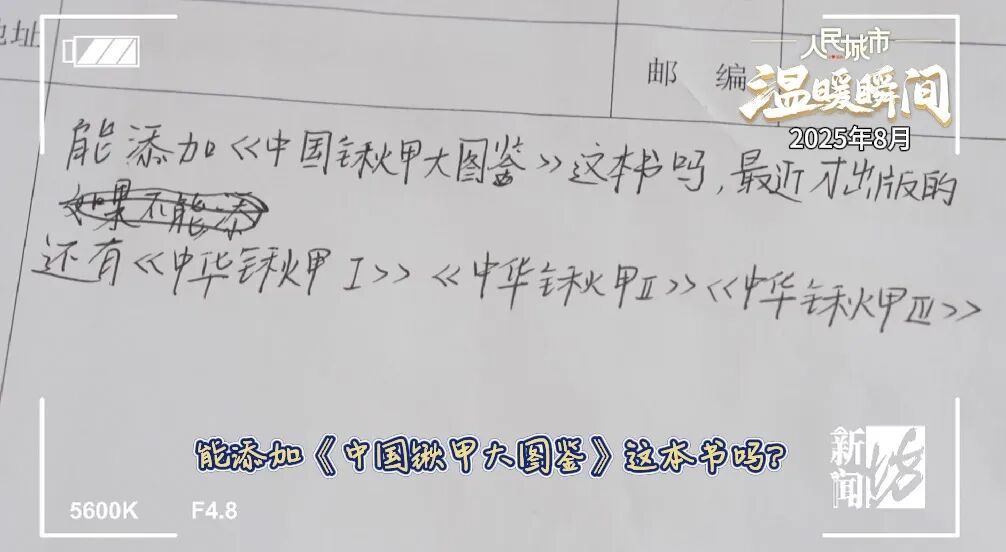 地址
邮 编
人民城市
温暖瞬间
2025年8月
能添加《中国锹甲大图鉴》这本书吗,最近才出版的
如果不能添
还有《中华锹甲Ⅰ》《中华锹甲Ⅱ》《中华锹甲Ⅲ》
能添加《中国锹甲大图鉴》这本书吗?
新闻坊
5600K F4.8